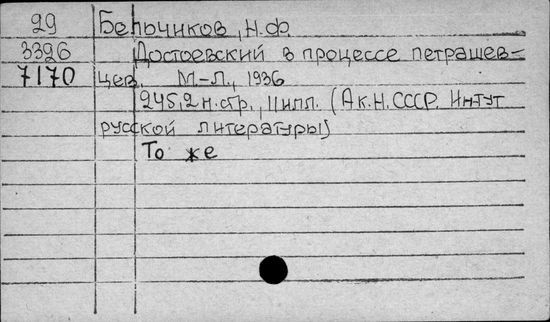 29 Бельчиков, Н.Ф.
3326 Достоевский в процессе петрашев-
7170 цев. М-Л., 1936
245,2 н.стр., 11 илл. (Ак.Н.СССР. Ин-тут
русской литературы)
То же